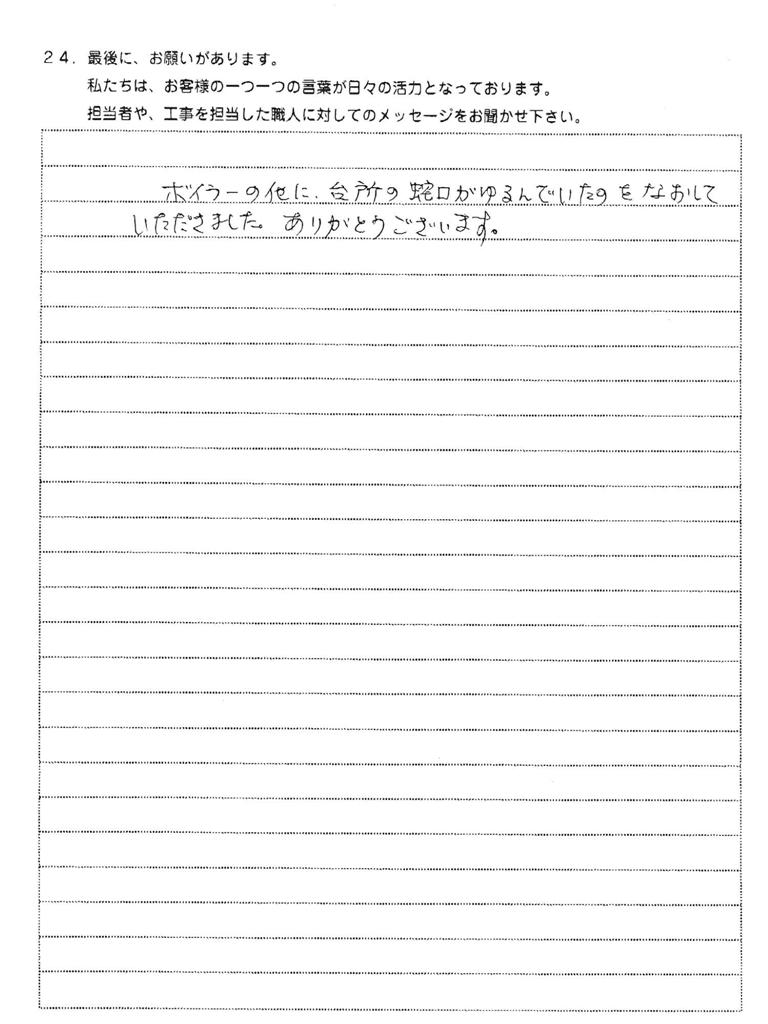 ２４．最後に、お願いがあります。
私たちは、お客様の一つ一つの言葉が日々の活力となっております。
担当者や、工事を担当した職人に対してのメッセージをお聞かせ下さい。
ボイラーの他に、台所の蛇口がゆるんでいたのをなおして
いただきました。ありがとうございます。